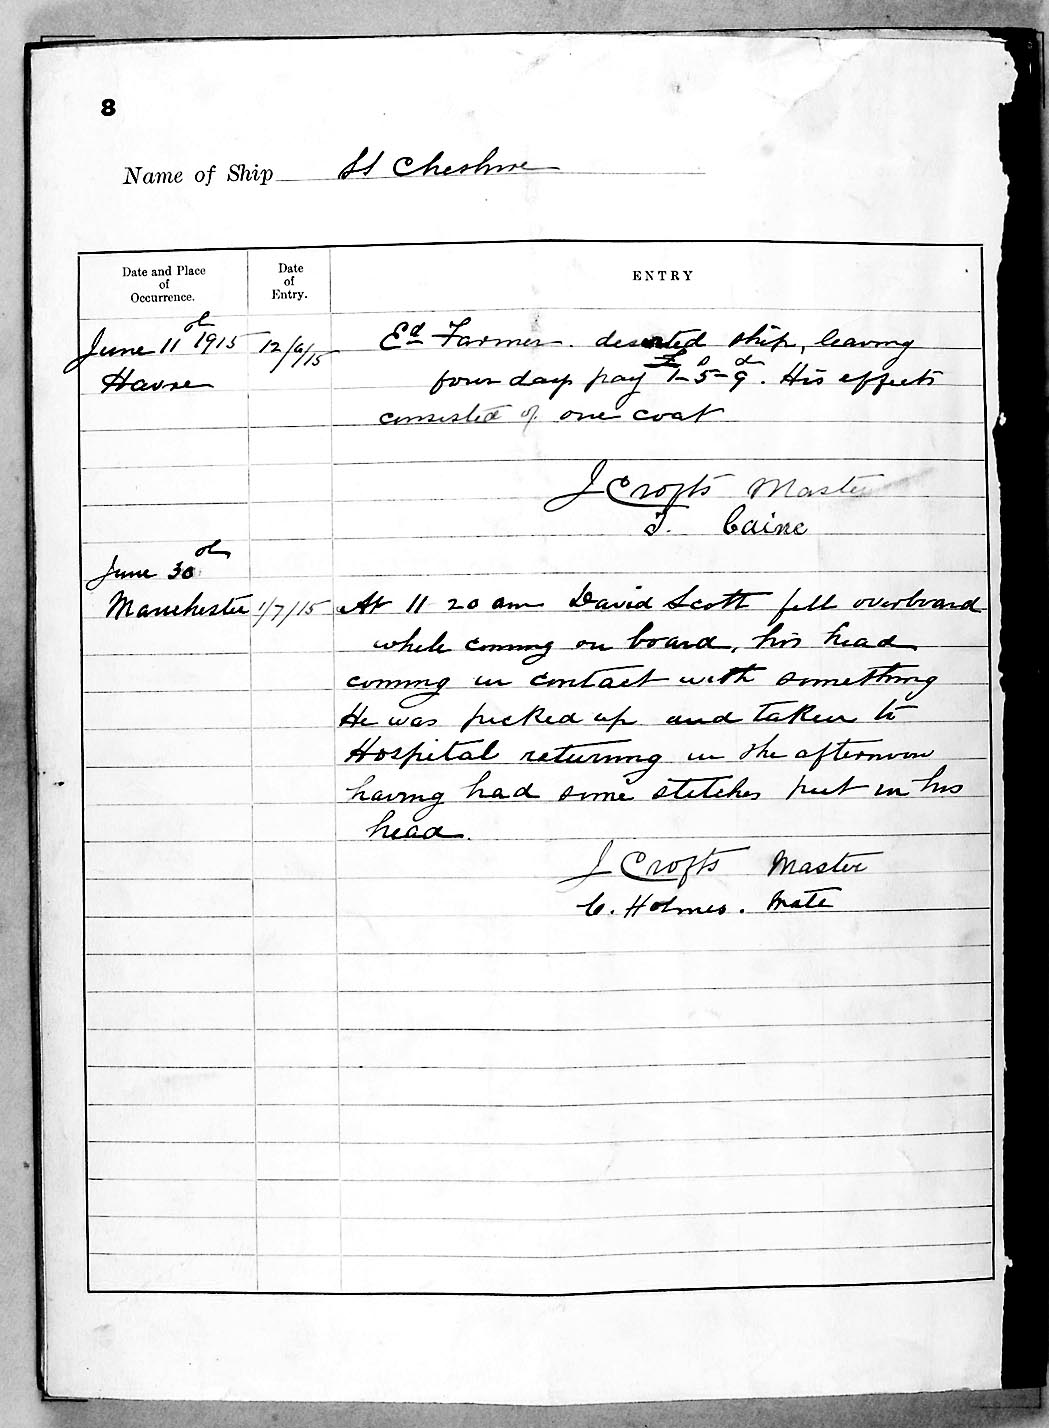 8
Name of Ship SS Cheshire
Date and Place
of
Occurrence.
Date
of
Entry.
ENTRY
June 11th 1915 12/6/15 Ed Farmer. deserted ship, leaving
Havre four days pay £1-5s-9d. His effects
consisted of one coat
J Crofts Master
T. Caine
June 30th
Manchester 1/7/15 At 11 20 am David Scott fell overboard
while coming on board, his head
coming in contact with something
He was picked up and taken to
Hospital returning in the afternoon
having had some stitches put in his
head.
J Crofts Master
C. Holmes. Mate